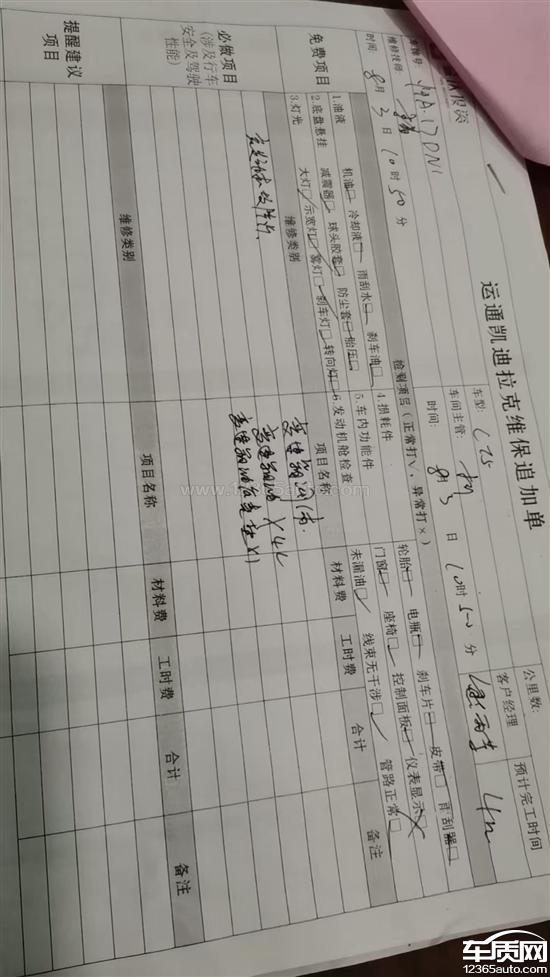 运通凯迪拉克维保追加单
车型: CT5
公里数:
预计完工时间
维修技师:
车间主管:
客户经理
时间: 8月3日10时50分
时间: 8月3日10时50分
检测项目(正常打√, 异常打×)
1.油液 机油□ 冷却液□ 雨刮水□ 刹车油□
4.损耗件 轮胎□ 电瓶□ 刹车片□ 皮带□ 雨刮器□
2.底盘悬挂 减震器□ 球头胶套□ 防尘套□ 胎压□
5.车内功能件 门窗□ 座椅□ 控制面板□ 仪表显示□
3.灯光 大灯□ 示宽灯□ 雾灯□ 刹车灯□ 转向灯□
6.发动机舱检查 未漏油□ 线束无干涉□ 管路正常□
免费项目
维修类别 项目名称 材料费 工时费 合计 备注
变速箱油
×4L
×1
必做项目
(涉及行车
安全及驾驶
性能)
维修类别 项目名称 材料费 工时费 合计 备注
提醒建议
项目
车质网
www.12365auto.com
12365auto.com